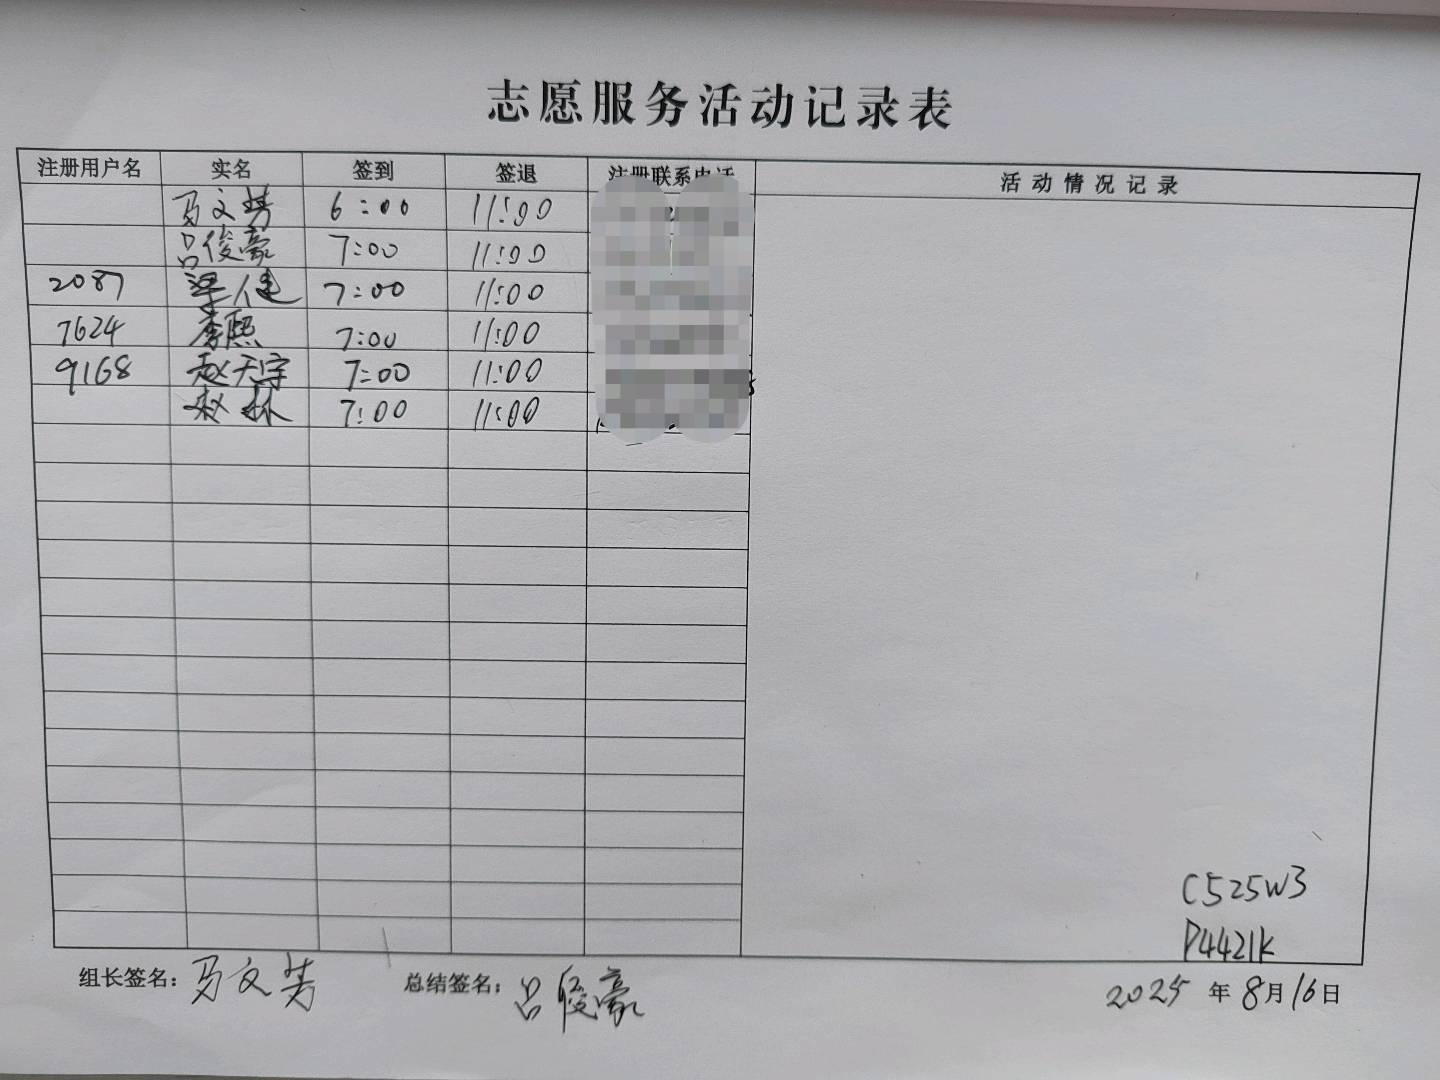 志愿服务活动记录表
注册用户名 实名 签到 签退 注册联系电话 活动情况记录
马文 6:00 11:00
吕俊豪 7:00 11:00
2087 梁健 7:00 11:00
7624 李熙 7:00 11:00
9168 赵天宇 7:00 11:00
7:00 11:00
C525W3
P4421K
组长签名: 马文 总结签名: 吕俊豪 2025年8月16日